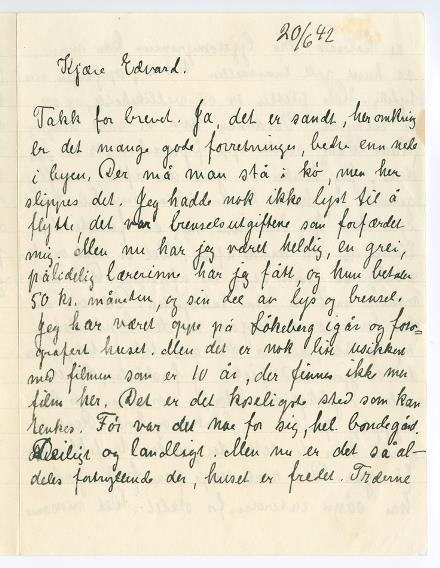 20/6 42
Kjære Edvard.
Takk for brevet. Ja, det er sandt, her omkring
er det mange gode forretninger, bedre enn nede
i byen. Der må man stå i kø, men her
slippes det. Jeg hadde nok ikke lyst til å
flytte, det var brenselsutgiftene som forfærdet
mig. Men nu har jeg været heldig, en grei,
pålidelig lærerinne har jeg fått, og hun betaler
50 kr. måneden, og sin del av lys og brensel.
Jeg har været oppe på Løkeberg igår og foto=
grafert huset. Men det er nok litt usikkert
med filmen som er 10 år, der finnes ikke mer
film her. Det er det koseligste sted som kan
tenkes. Før var det noe for sig, hel bondegård.
Deiligt og landligt. Men nu er det så al-
deles fortryllende der, huset er fredet. Trærne